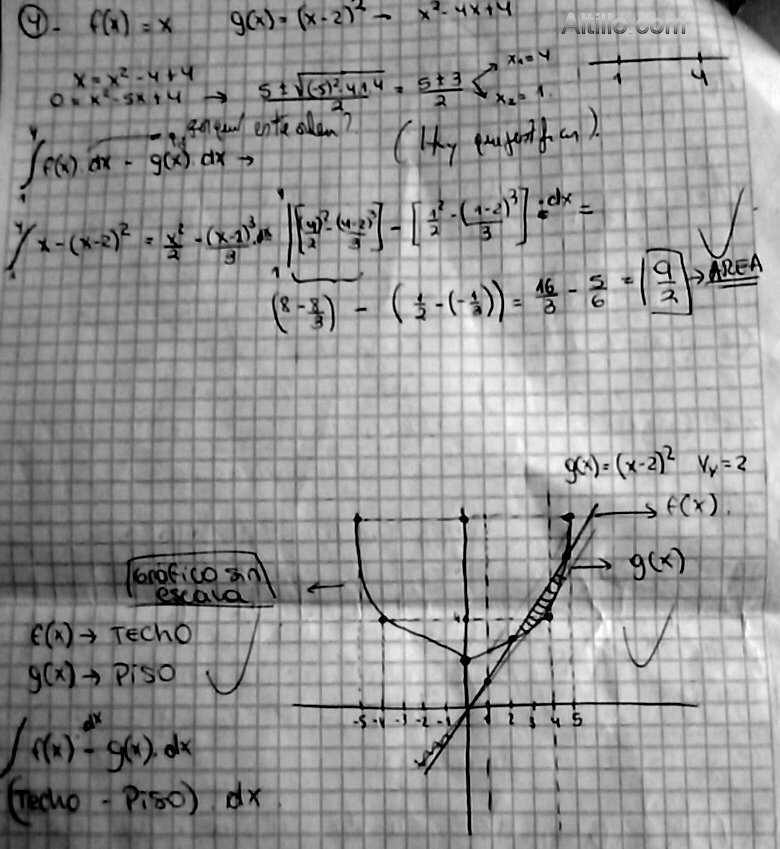 4- f(x) = x g(x) = (x-2)² - x² - 4x + 4
Altillo.com
x = x² - 4 + 4
0 = x² - 5x + 4 → 5 ± √(-5)² - 4.1.4 / 2 = 5 ± 3 / 2 x₁ = 4 x₂ = 1 1 4
¿por qué este orden?
(Hay que justificar).
∫₁⁴ f(x) dx - g(x) dx →
∫₁⁴ x - (x-2)² = x²/2 - (x-2)³/3 dx |₁⁴ [(4)²/2 - (4-2)³/3] - [1²/2 - (1-2)³/3] dx =
(8 - 8/3) - (1/2 - (-1/3)) = 16/3 - 5/6 = 9/2 → AREA
g(x) = (x-2)² Vy = 2
f(x).
g(x)
Gráfico sin
escala ←
f(x) → TECHO
g(x) → PISO
4
-5 -4 -3 -2 -1 1 2 3 4 5
∫ f(x) dx - g(x). dx
(Techo - Piso) dx